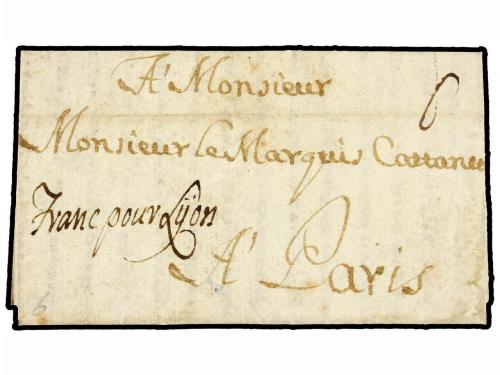 A' Monsieur
6
Monsieur le Marquis Cattaneo
Franc pour Lÿon
A' Paris
6